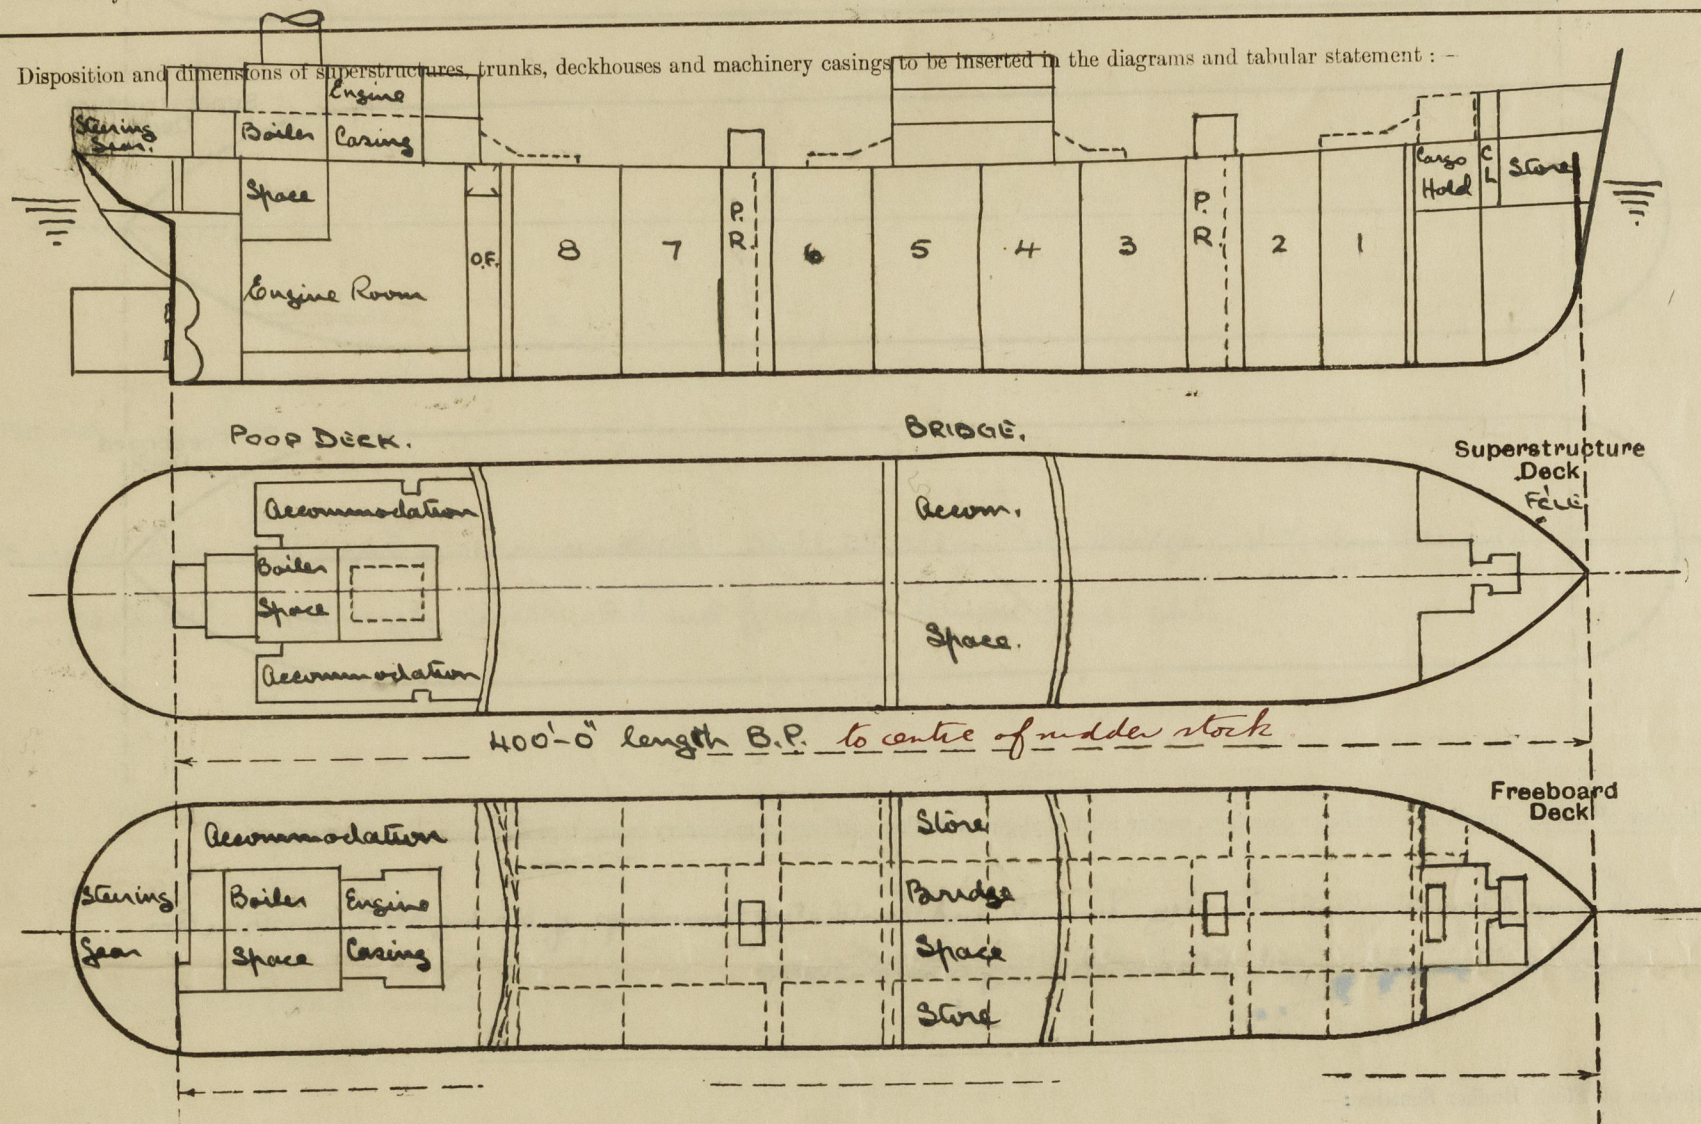 Disposition and dimensions of superstructures, trunks, deckhouses and machinery casings to be inserted in the diagrams and tabular statement : –
Engine
Steering Gear.
Boiler
Casing
Space
Engine Room
O.F.
8
7
P.
R.
6
5
4
3
P.
R.
2
1
Cargo
Hold
C
L
Store
POOP DECK.
BRIDGE.
Superstructure
Deck
F'CLE
Accommodation
Accom.
Boiler
Space
Space.
Accommodation
400'-0" length B.P. to centre of rudder stock
Freeboard
Deck
Accommodation
Store
Steering
Boiler
Engine
Bridge
Gear
Space
Casing
Space
Store